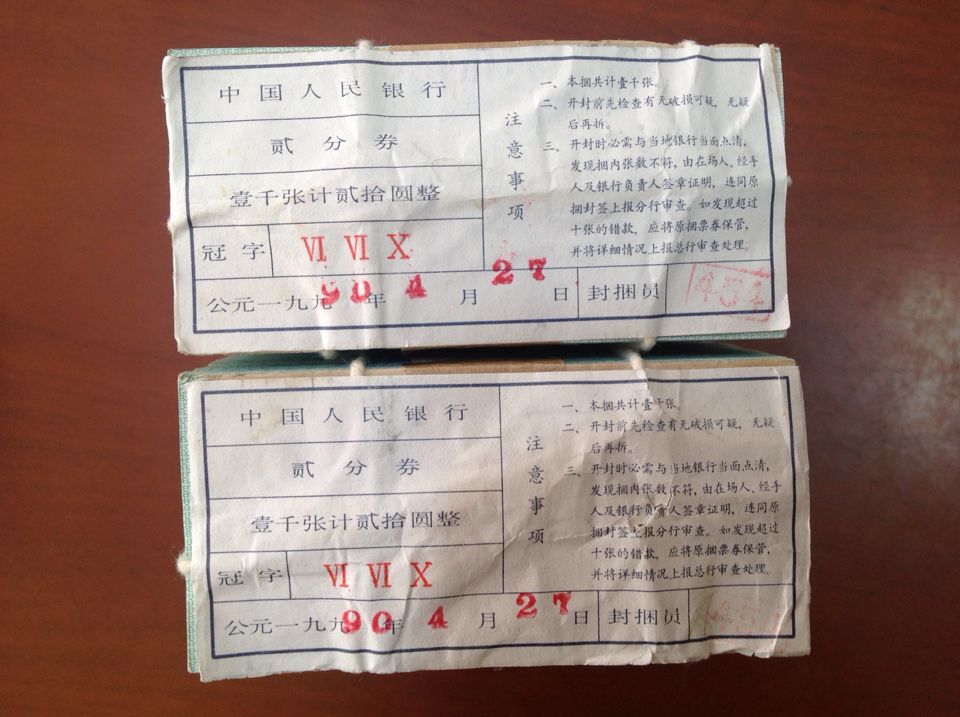 中国人民银行
贰分券
壹千张计贰拾圆整
冠字 Ⅵ Ⅵ Ⅹ
公元一九九90年 4 月 27 日 封捆员
注意事项
一、本捆共计壹千张。
二、开封前先检查有无破损可疑，无疑
后再拆。
三、开封时必需与当地银行当面点清，
发现捆内张数不符，由在场人、经手
人及银行负责人签章证明，连同原
捆封签上报分行审查。如发现超过
十张的错款，应将原捆票券保管，
并将详细情况上报总行审查处理。
中国人民银行
贰分券
壹千张计贰拾圆整
冠字 Ⅵ Ⅵ Ⅹ
公元一九九90年 4 月 27 日 封捆员
注意事项
一、本捆共计壹千张。
二、开封前先检查有无破损可疑，无疑
后再拆。
三、开封时必需与当地银行当面点清，
发现捆内张数不符，由在场人、经手
人及银行负责人签章证明，连同原
捆封签上报分行审查。如发现超过
十张的错款，应将原捆票券保管，
并将详细情况上报总行审查处理。